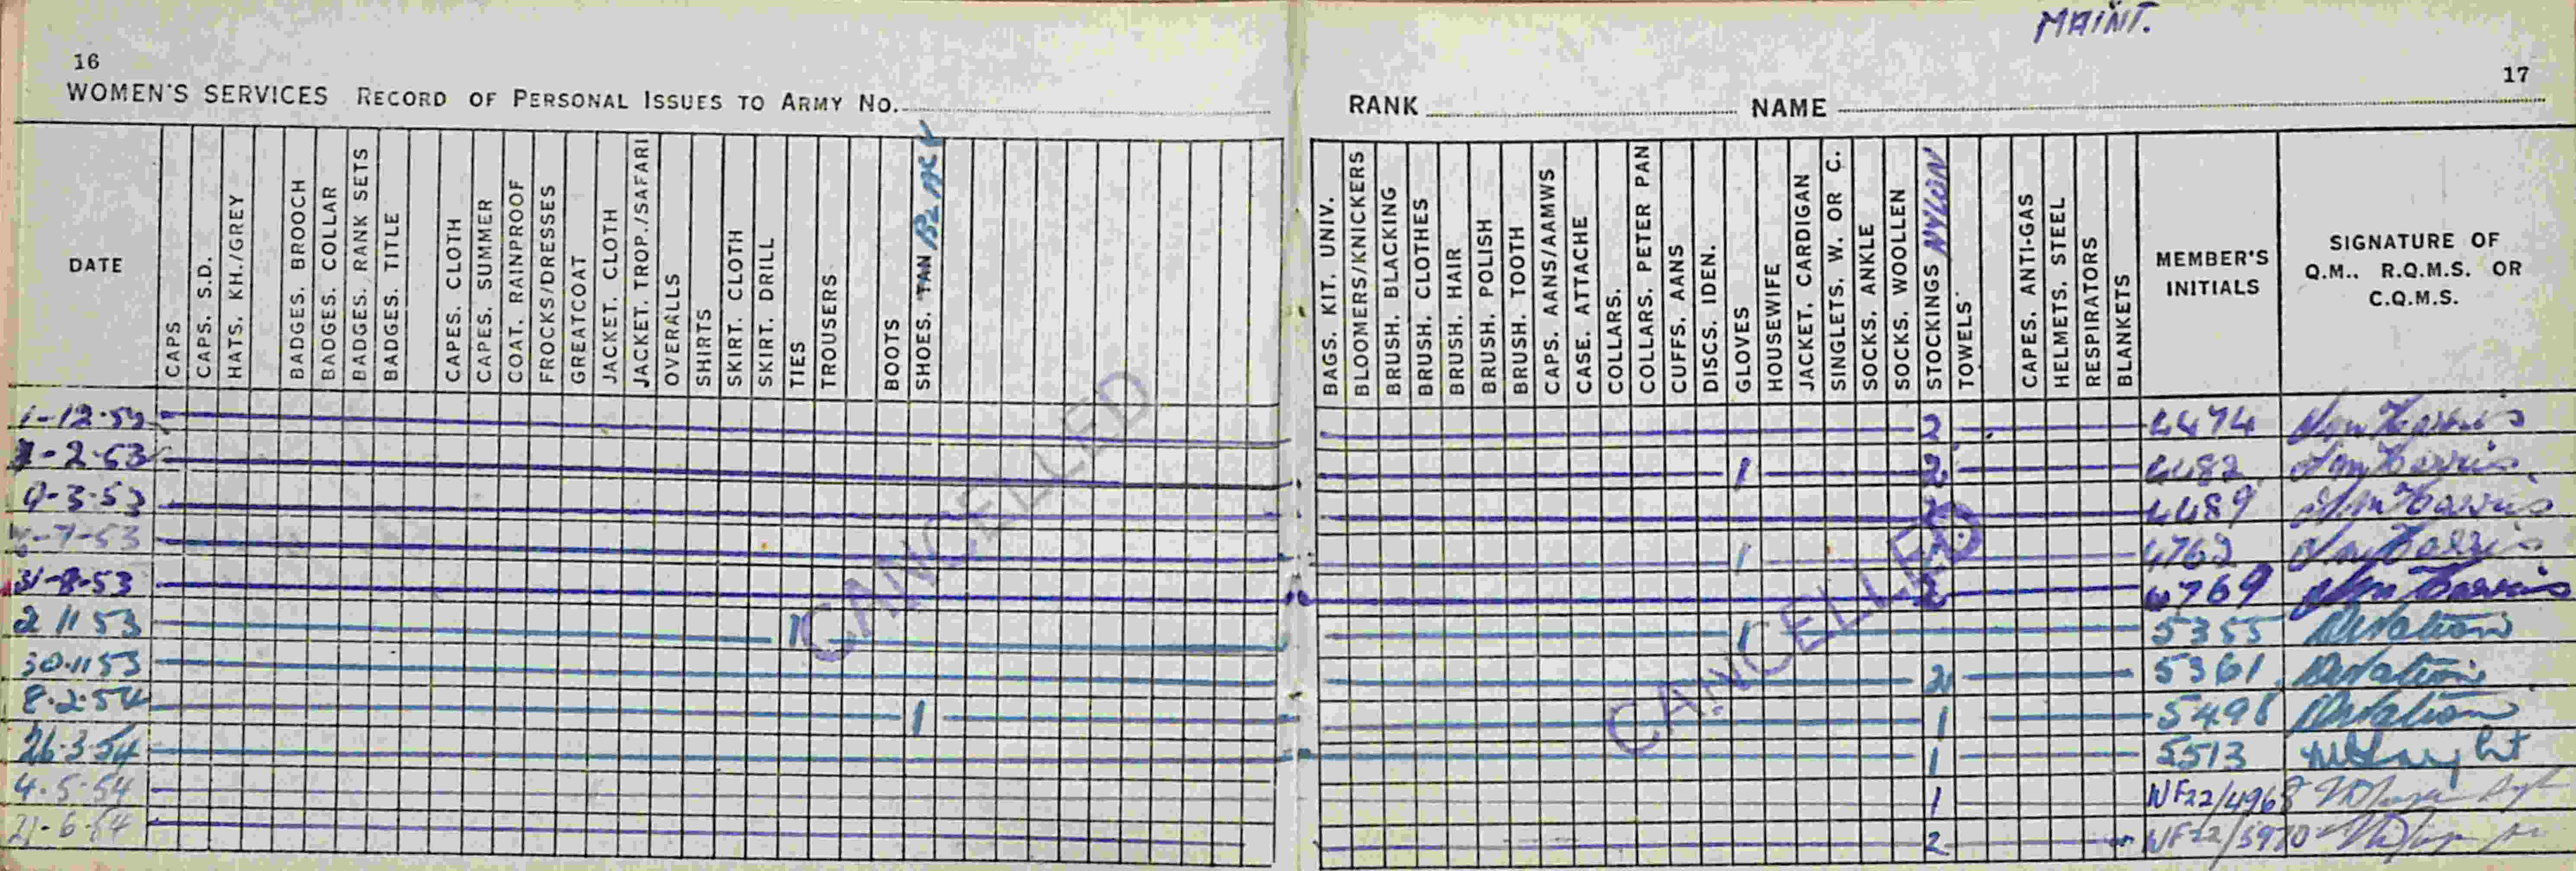 MAINT.
16
17
WOMEN'S SERVICES RECORD OF PERSONAL ISSUES TO ARMY No.
RANK NAME
DATE
CAPS
CAPS. S.D.
HATS. KH./GREY
BADGES. BROOCH
BADGES. COLLAR
BADGES. RANK SETS
BADGES. TITLE
CAPES. CLOTH
CAPES. SUMMER
COAT. RAINPROOF
FROCKS/DRESSES
GREATCOAT
JACKET. CLOTH
JACKET. TROP./SAFARI
OVERALLS
SHIRTS
SKIRT. CLOTH
SKIRT. DRILL
TIES
TROUSERS
BOOTS
SHOES. TAN BLACK
BAGS. KIT. UNIV.
BLOOMERS/KNICKERS
BRUSH. BLACKING
BRUSH. CLOTHES
BRUSH. HAIR
BRUSH. POLISH
BRUSH. TOOTH
CAPS. AANS/AAMWS
CASE. ATTACHE
COLLARS.
COLLARS. PETER PAN
CUFFS. AANS
DISCS. IDEN.
GLOVES
HOUSEWIFE
JACKET. CARDIGAN
SINGLETS. W. OR C.
SOCKS. ANKLE
SOCKS. WOOLLEN
STOCKINGS NYLON
TOWELS
CAPES. ANTI-GAS
HELMETS. STEEL
RESPIRATORS
BLANKETS
MEMBER'S INITIALS
SIGNATURE OF
Q.M.. R.Q.M.S. OR
C.Q.M.S.
1-12-52 2 4474
-2-53 1 2 4482
9-3-53 4489
-7-53 1 4762
31-8-53 2 4769
2 11 53 1 1 5355
30.11 53 2 5361
8.2.54 1 1 5498
26.3.54 1 5513
4.5.54 1 WF22/4968
21-6-54 2 WF22/5970
CANCELLED
CANCELLED